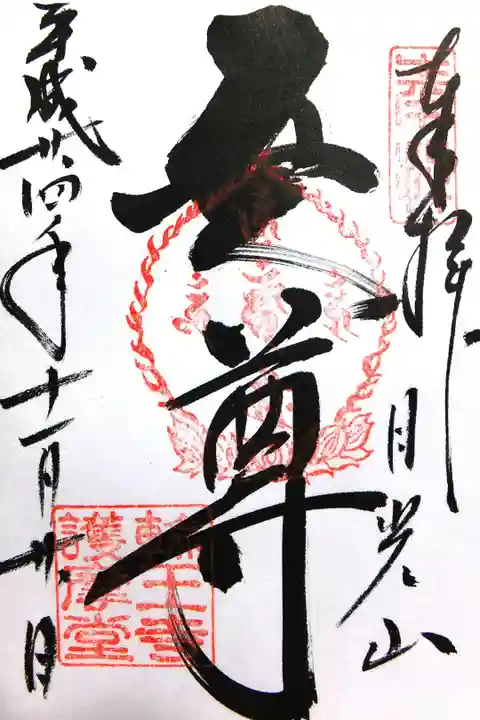 奉拝 日光山
五大尊
平成廿四年十一月廿日
輪王寺
護摩堂